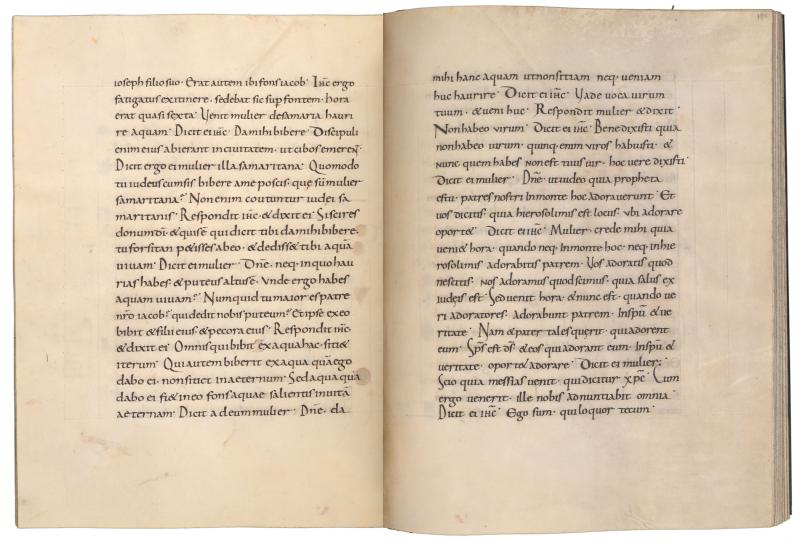 ioseph filio suo · Erat autem ibi fons iacob · Ihc ergo
fatigatus ex itinere · sedebat sic sup fontem · hora
erat quasi sexta · Venit mulier desamaria hauri
re aquam · Dicit ei ihc · Damihi bibere · Discipuli
enim eius abierant inciuitatem · ut cibos emerent
Dicit ergo ei mulier illa samaritana · Quomodo
tu iudeus cum sis bibere ame poscis · que sū mulier
samaritana · Non enim coutuntur iudei sa
maritanis · Respondit ihc · & dixit ei · Si scires
donum dī · & quis ē qui dicit tibi damihi bibere ·
tu forsitan petisses abeo · & dedisset tibi aquā
uiuam · Dicit ei mulier · Dne · neq · inquo hau
rias habes · & puteus altus ē · Vnde ergo habes
aquam uiuam · Numquid tu maior es patre
nro iacob · qui dedit nobis puteum · Et ipse exeo
bibit & filii eius & pecora eius · Respondit ihc ·
& dixit ei · Omnis qui bibit ex aqua hac · siti&
iterum · Qui autem biberit ex aqua quā ego
dabo ei · non sitiet inaeternum · Sed aqua quā
dabo ei fi& ineo fons aquae salientis inuitā
aeternam · Dicit adeum mulier · Dne · da
mihi hanc aquam ut non sitiam neq · ueniam
huc haurire · Dicit ei ihc · Vade uoca uirum
tuum · & ueni huc · Respondit mulier & dixit ·
Non habeo uirum · Dicit ei ihc · Bene dixisti quia
non habeo uirum · quinq · enim uiros habuisti · &
nunc quem habes non est tuus uir · hoc uere dixisti ·
Dicit ei mulier · Dne · ut uideo quia propheta
es tu · patres nostri inmonte hoc adorauerunt · Et
uos dicitis · quia hierosolimis est locus · ubi adorare
oport& · Dicit ei ihc · Mulier · crede mihi quia
ueni& hora · quando neq · inmonte hoc · neq · inhie
rosolimis adorabitis patrem · Vos adoratis quod
nescitis · nos adoramus quod scimus · quia salus ex
iudęis est · Sed uenit hora · & nunc est · quando ue
ri adoratores · adorabunt patrem · Inspū & ue
ritate · Nam & pater tales querit · qui adorent
eum · Sps est ds · & eos qui adorant eum · Inspū &
ueritate · oport& adorare · Dicit ei mulier ·
Scio quia messias uenit · qui dicitur xpc · Cum
ergo uenerit · ille nobis adnuntiabit omnia ·
Dicit ei ihc · Ego sum · qui loquor tecum ·